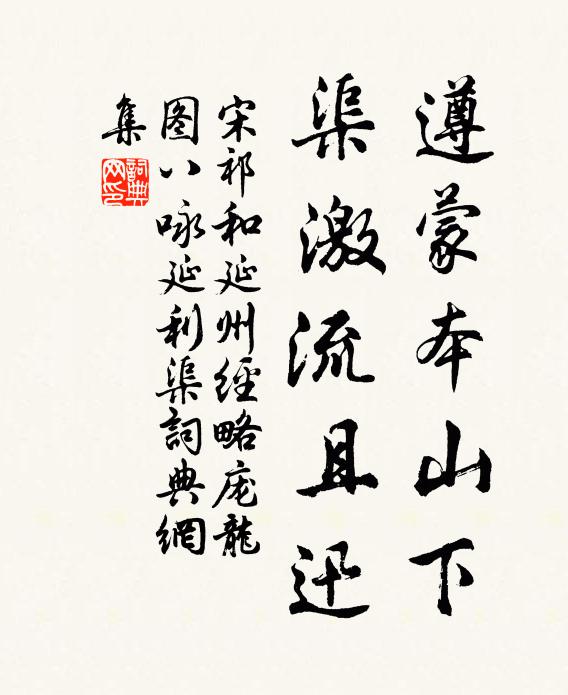 遵蒙本山下
渠激流且迅
宋祁和延州經略庞龍
图八咏延利渠詞典網
集
詞典网印